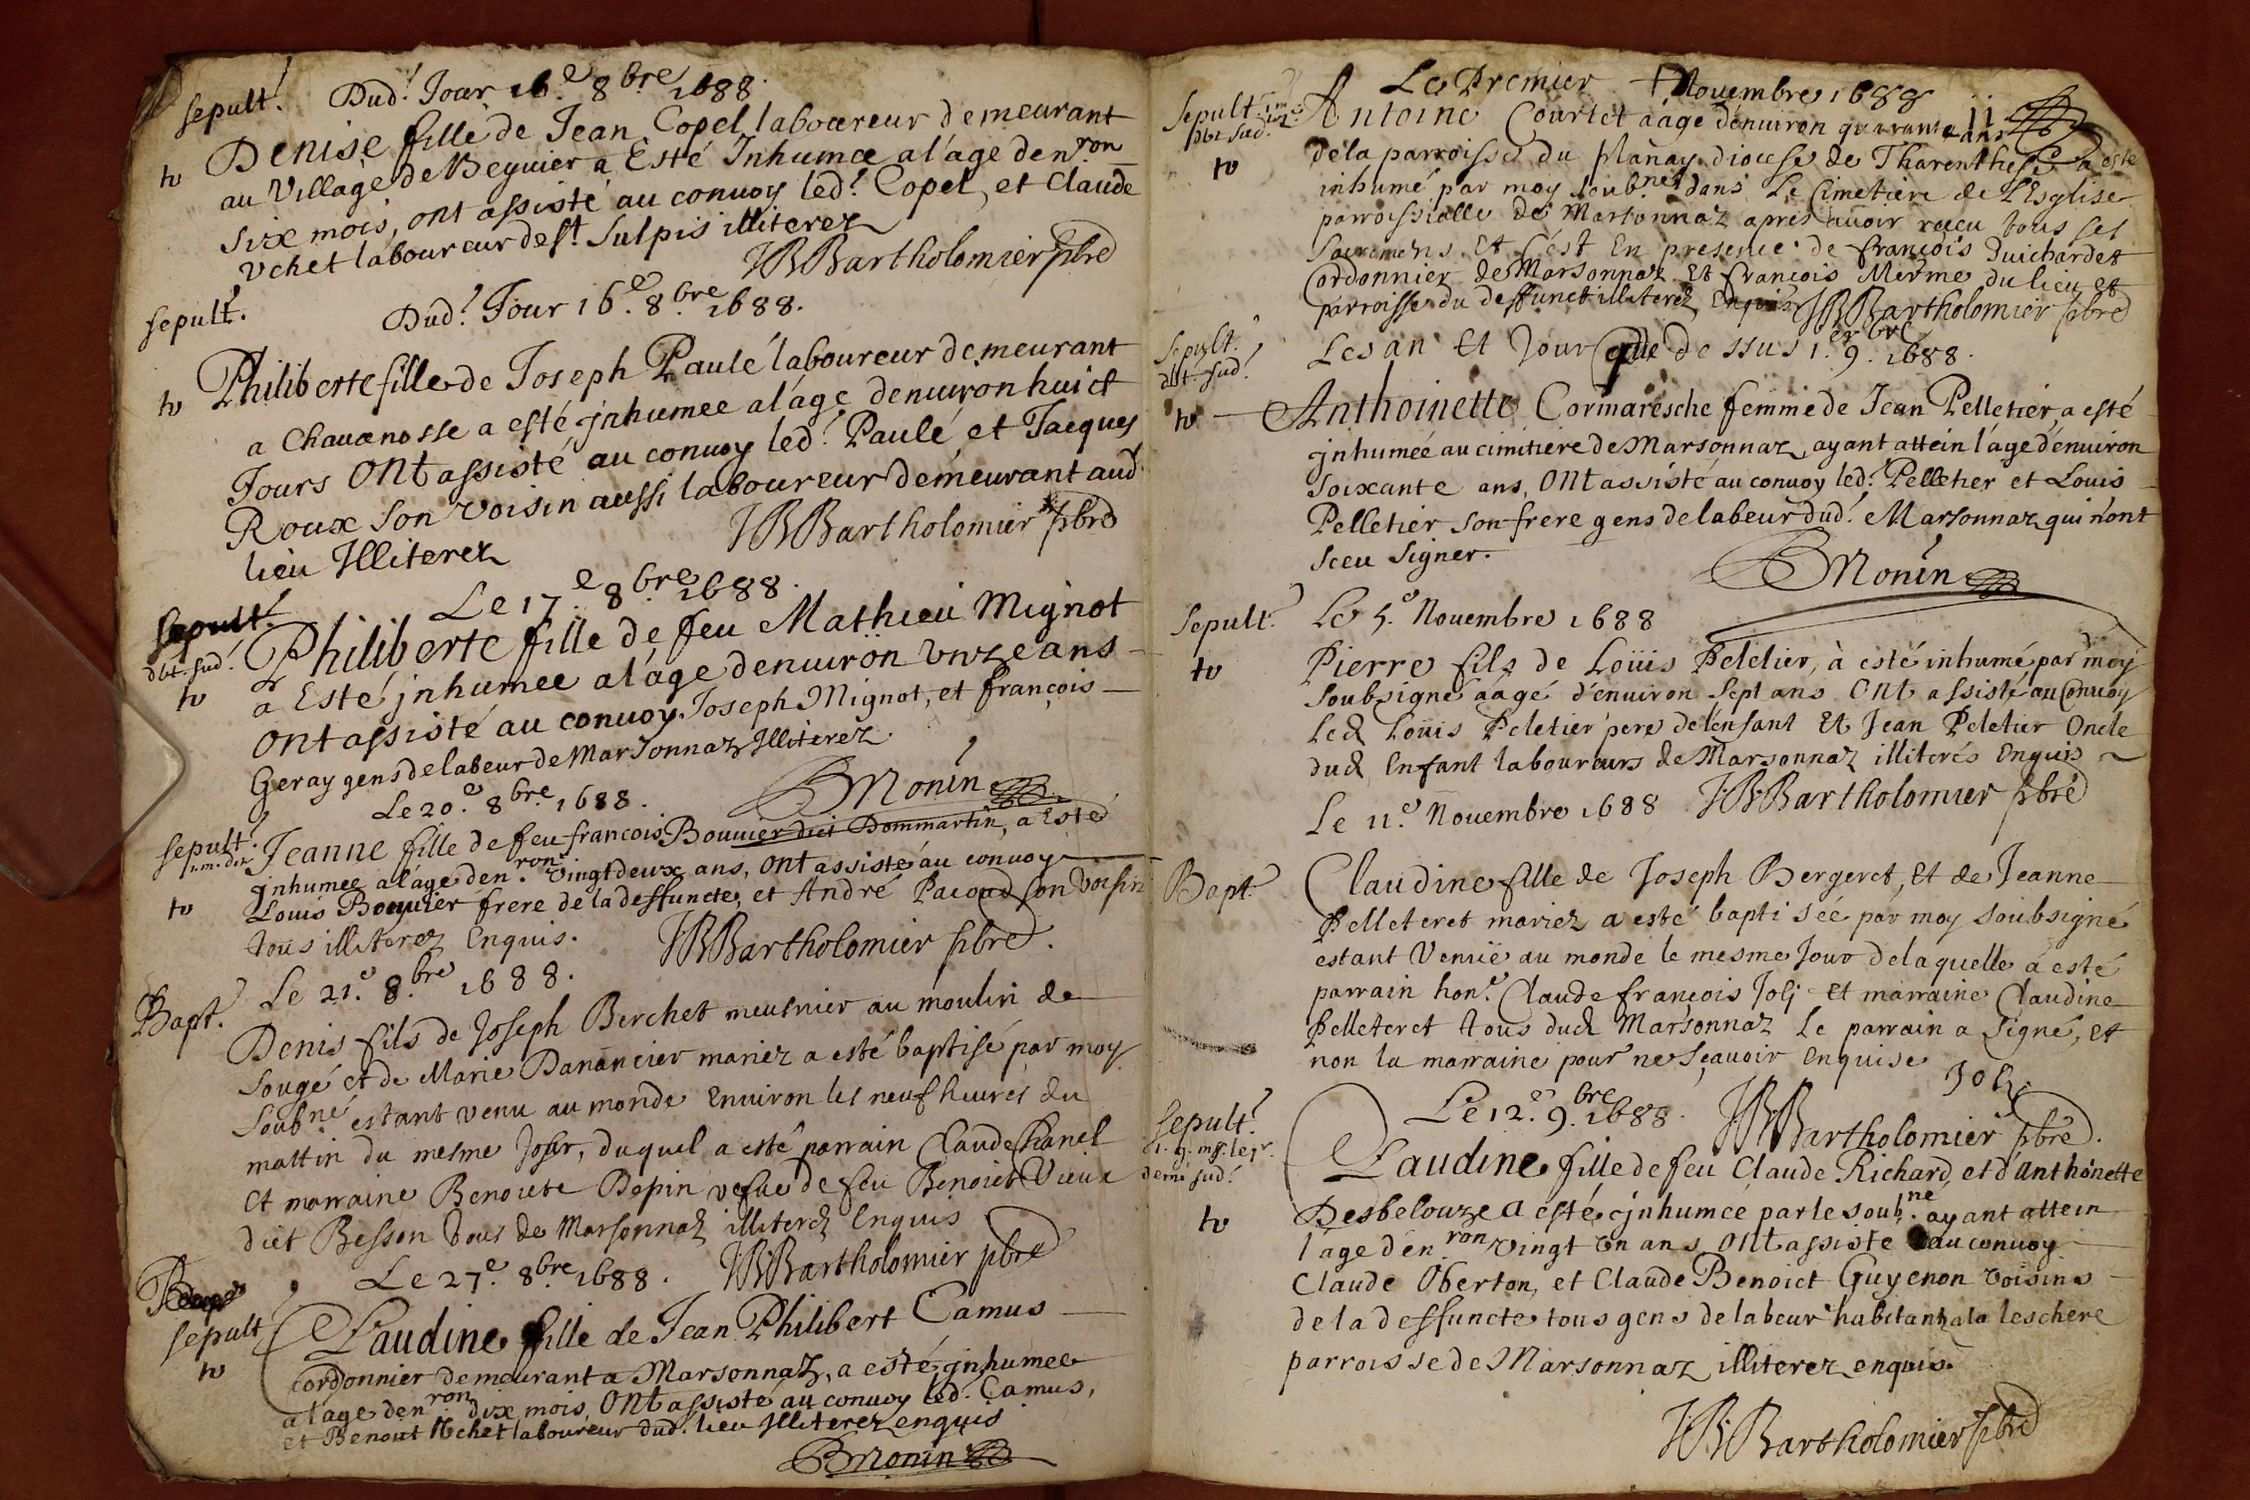 sepult. Dud. Jour 16.e 8.bre 1688.
Denise fille de Jean Copel laboureur demeurant
to au Village de Beyuier a Esté Inhumee a l'age den.ron
six mois, ont assisté au conuoy led. Copel, et Claude
Vchet laboureur de st. Sulpis illiterez
JBBartholomier pbre
sepult. Dud. Jour 16.e 8.bre 1688.
to Philiberte fille de Joseph Paulé laboureur demeurant
a Chauanosse a esté jnhumee al'age denuiron huict
Jours ont assisté au conuoy led. Paulé et Jacques
Roux son voisin aussi laboureur demeurant aud.
lieu Illiterez JBBartholomier pbre
Le 17.e 8.bre 1688.
Sepult. Philiberte fille de feu Mathieu Mignot
dbt. sud. to a Esté jnhumee al'age denuiron vnze ans
ont assisté au conuoy Joseph Mignot, et françois
Geray gens de labeur de Marsonnaz Illiterez.
BMonin
Le 20.e 8.bre 1688.
sepult. Jeanne fille de feu francois Bouuier dict Dommartin, a Esté
jnhumee alage den.ron vingt deux ans, ont assisté au conuoy
to Louis Bouuier frere de la deffuncte, et André Pacoud son voisin
tous illiterez Enquis. JBBartholomier pbre.
Le 21.e 8.bre 1688.
Bapt. Denis fils de Joseph Berchet meusnier au moulin de
Sougé et de Marie Danancier mariez a esté baptisé par moy
soub.né estant venu au monde Enuiron les neuf heures du
mattin du mesme Jour, duquel a esté parrain Claude Chanel
Et marraine Benoite Depin vefue de feu Benoist Vieux
dict Besson tous de Marsonnaz illiterez Enquis
Le 27.e 8.bre 1688. JBBartholomier pbre
sepult Claudine fille de Jean Philibert Camus
to Cordonnier demeurant a Marsonnaz, a esté jnhumee
a l'age den.ron dix mois, ont assisté au conuoy led. Camus,
et Benoit Vchet laboureur dud. lieu Illiterez enquis
BMonin
Le Premier Nouembre 1688
11
Sepult Antoine Courtet aágé d'enuiron quarante ans
to de la parroisse du planay diocese de Tharenthese a esté
inhumé par moy soub.né dans Le Cimetiere de L'Esglise
parroissialle de Marsonnaz apres auoir receu tous ses
Sacremens Et c'est En presence de François Duichardet
Cordonnier de Marsonnaz Et francois Merme du lieu et
parroisse du deffunct illiterez Enquis JBBartholomier pbre
Sepult. Les an Et Jour que dessus 1.er 9.bre 1688.
dbt. sud.
to Anthoinette Cormaresche femme de Jean Pelletier, a esté
jnhumée au cimitiere de Marsonnaz, ayant attein l'age d'enuiron
soixante ans, ont assisté au conuoy led. Pelletier et Louis
Pelletier son frere gens de labeur dud. Marsonnaz qui n'ont
sceu signer.
BMonin
Sepult. Le 5.e Nouembre 1688
to Pierre fils de Loüis Peletier, à esté inhumé par moy
soubsigné aâgé d'enuiron sept ans ont assisté au Conuoy
Led Loüis Peletier pere de lenfant Et Jean Peletier Oncle
dud Enfant laboureurs de Marsonnaz illiterés Enquis
Le 11.e Nouembre 1688 JBBartholomier pbre
Bapt. Claudine fille de Joseph Bergeret, Et de Jeanne
Pelleteret mariez a esté baptisée par moy soubsigné
estant Venüe au monde le mesme Jour de laquelle a esté
parrain hon.e Claude francois Jolj et marraine Claudine
Pelleteret tous dud Marsonnaz Le parrain a Signé, et
non la marraine pour ne sçauoir Enquise
Joly
Le 12.e 9.bre 1688. JBBartholomier pbre.
sepult. Claudine fille de feu Claude Richard, et d'Anthoinette
to Desbelouze a esté jnhumée par le soub.né ayant attein
l'age d'en.ron vingt vn ans ont assisté au conuoy
Claude Oberton, et Claude Benoict Guyenon voisins
de la deffuncte tous gens de labeur habitantz a la leschere
parroisse de Marsonnaz illiterez enquis.
JBBartholomier pbre